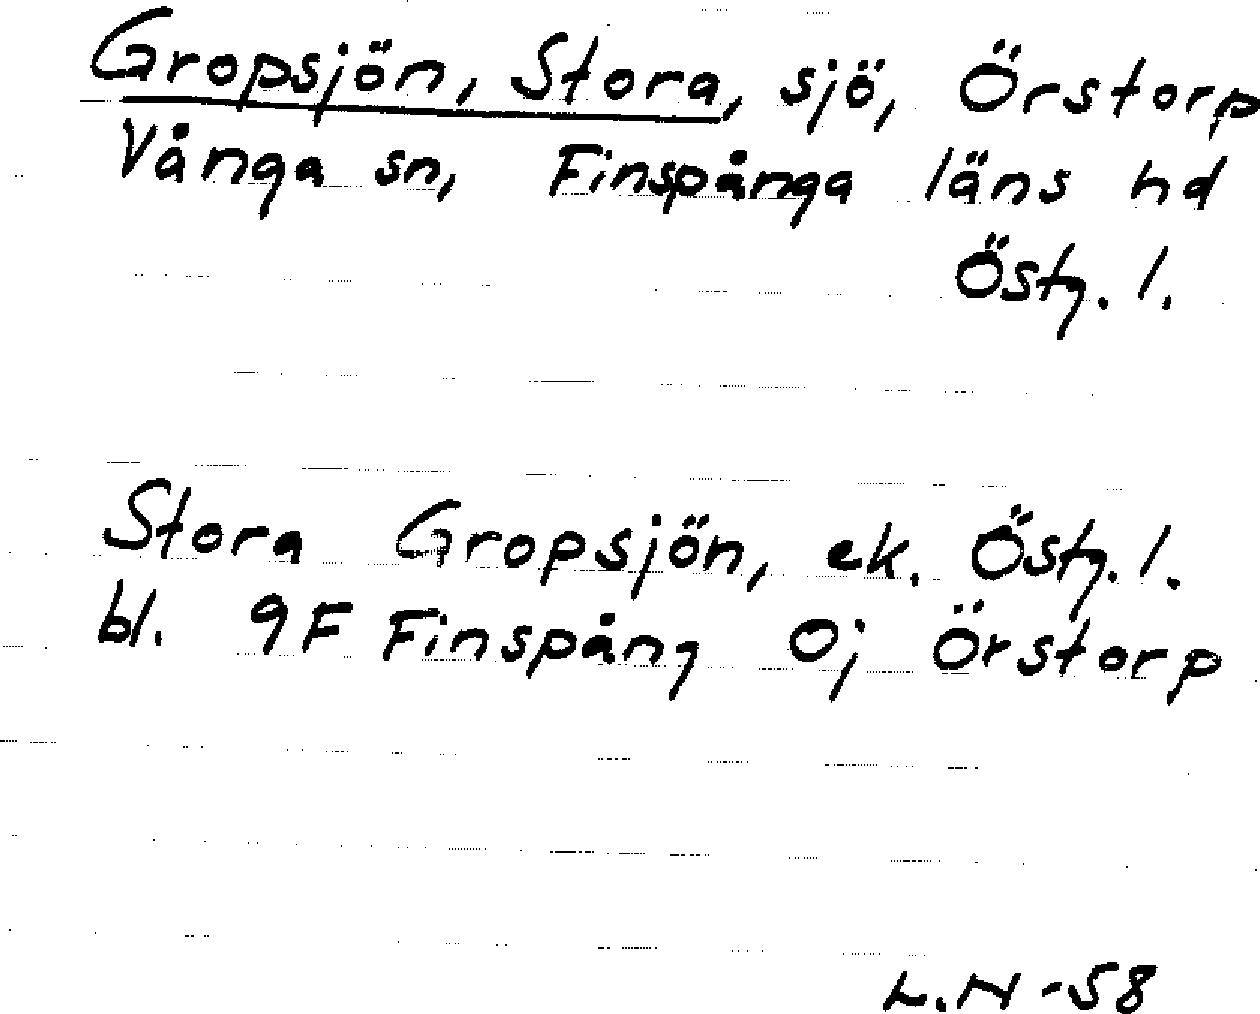 Gropsjön, Stora, sjö, Örstorp
Vånga sn, Finspånga läns hd
Östg. l.
Stora Gropsjön, ek. Östg. l.
bl. 9F Finspång 0j Örstorp
L.N -58